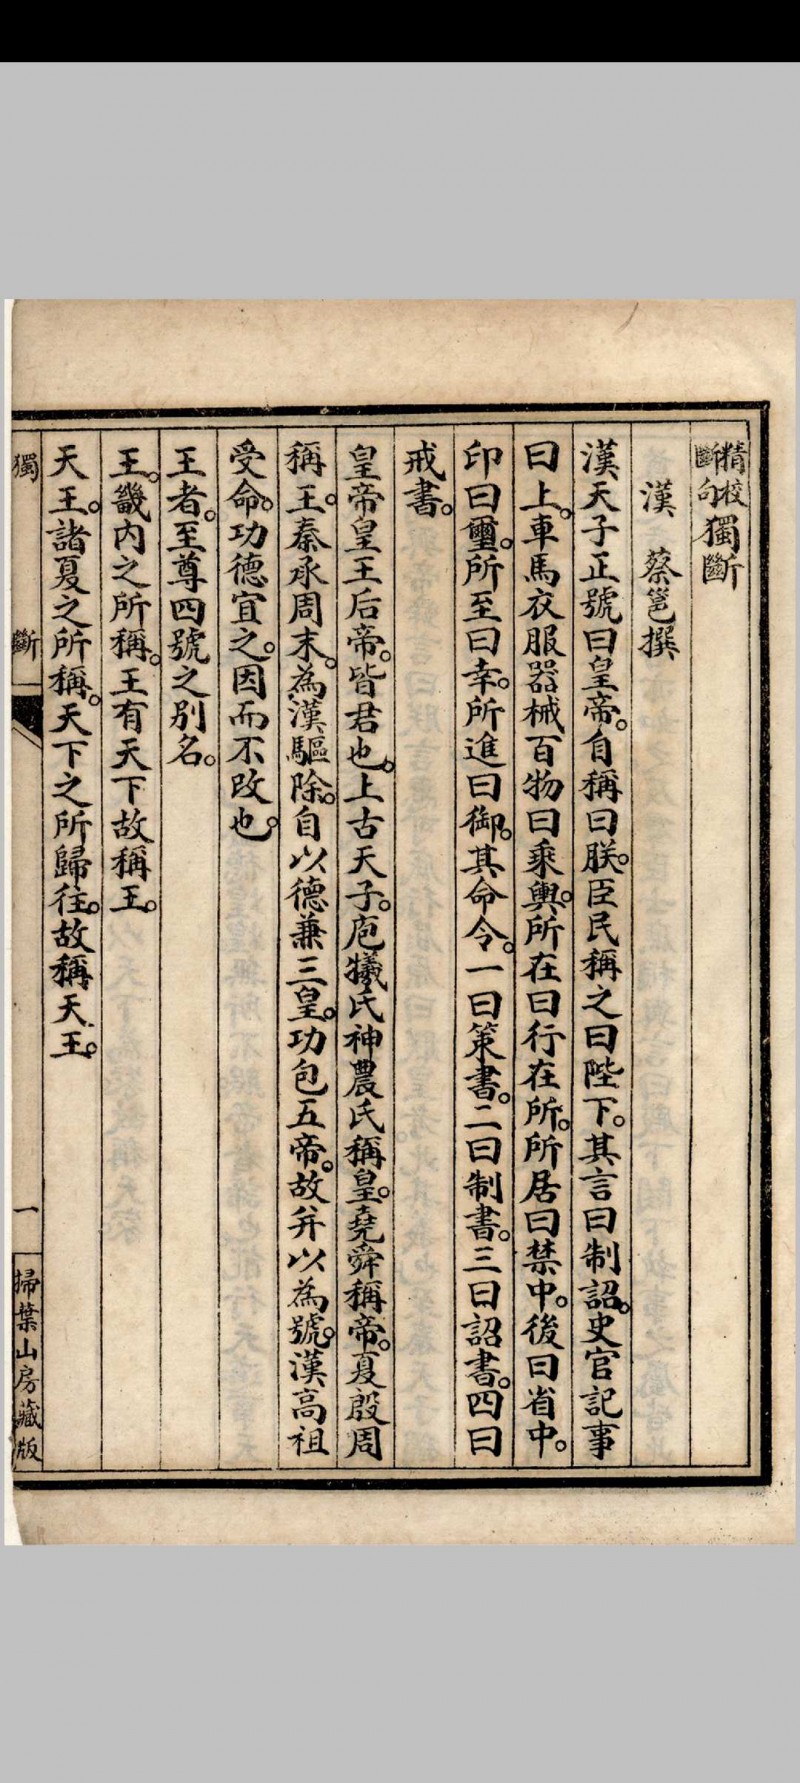 精校斷句獨斷
漢　蔡邕撰
漢天子正號曰皇帝。自稱曰朕。臣民稱之曰陛下。其言曰制詔。史官記事
曰上。車馬衣服器械百物曰乘輿。所在曰行在所。所居曰禁中。後曰省中。
印曰璽。所至曰幸。所進曰御。其命令。一曰策書。二曰制書。三曰詔書。四曰
戒書。
皇帝皇王后帝。皆君也。上古天子。庖犧氏神農氏稱皇。堯舜稱帝。夏殷周
稱王。秦承周末。為漢驅除。自以德兼三皇。功包五帝。故并以為號。漢高祖
受命。功德宜之。因而不改也。
王者。至尊四號之別名。
王。畿內之所稱。王有天下故稱王。
天王。諸夏之所稱。天下之所歸往。故稱天王。
獨　斷　一　掃葉山房藏版